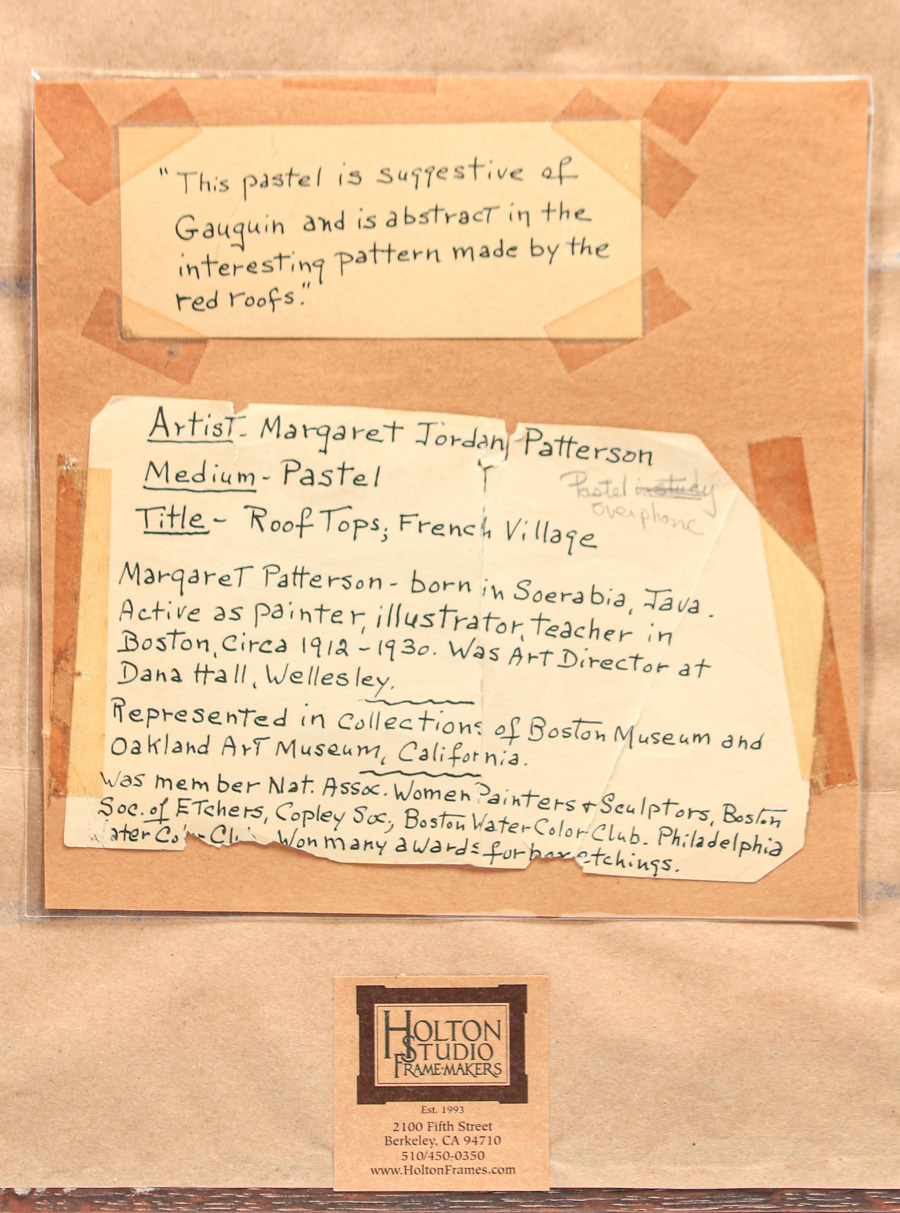 "This pastel is suggestive of
Gauguin and is abstract in the
interesting pattern made by the
red roofs."
Artist - Margaret Jordan Patterson
Medium - Pastel
Pastel
over phone
Title - Roof Tops; French Village
Margaret Patterson - born in Soerabia, Java.
Active as painter, illustrator, teacher in
Boston, Circa 1912 - 1930. Was Art Director at
Dana Hall, Wellesley.
Represented in collections of Boston Museum and
Oakland Art Museum, California.
Was member Nat. Assoc. Women Painters & Sculptors, Boston
Soc. of Etchers, Copley Soc., Boston Water Color Club. Philadelphia
Water Color Club. Won many awards for her etchings.
HOLTON
STUDIO
FRAME-MAKERS
Est. 1993
2100 Fifth Street
Berkeley, CA 94710
510/450-0350
www.HoltonFrames.com